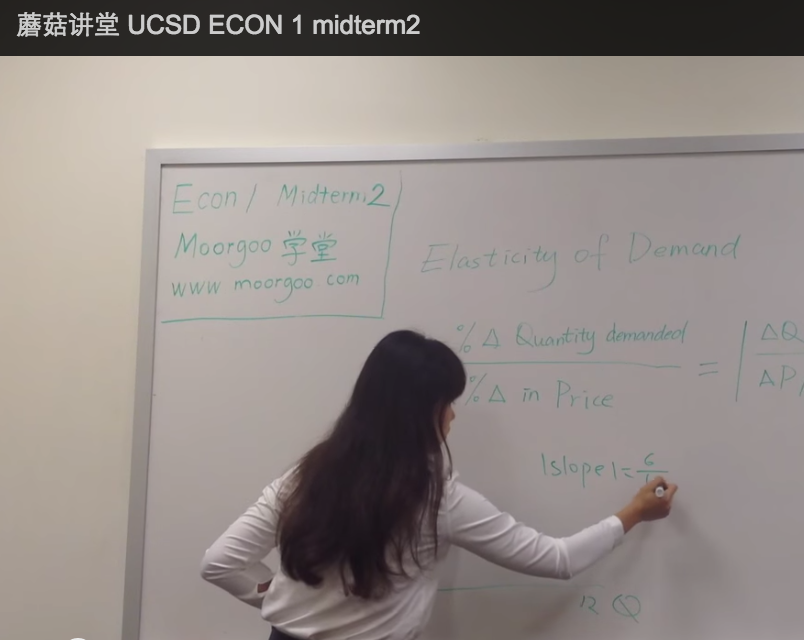 蘑菇讲堂 UCSD ECON 1 midterm2
Econ 1 Midterm2
Moorgoo 学堂
www moorgoo.com
Elasticity of Demand
% Δ Quantity demanded
% Δ in Price
= | ΔQ
ΔP
|slope| = 6
12 Q